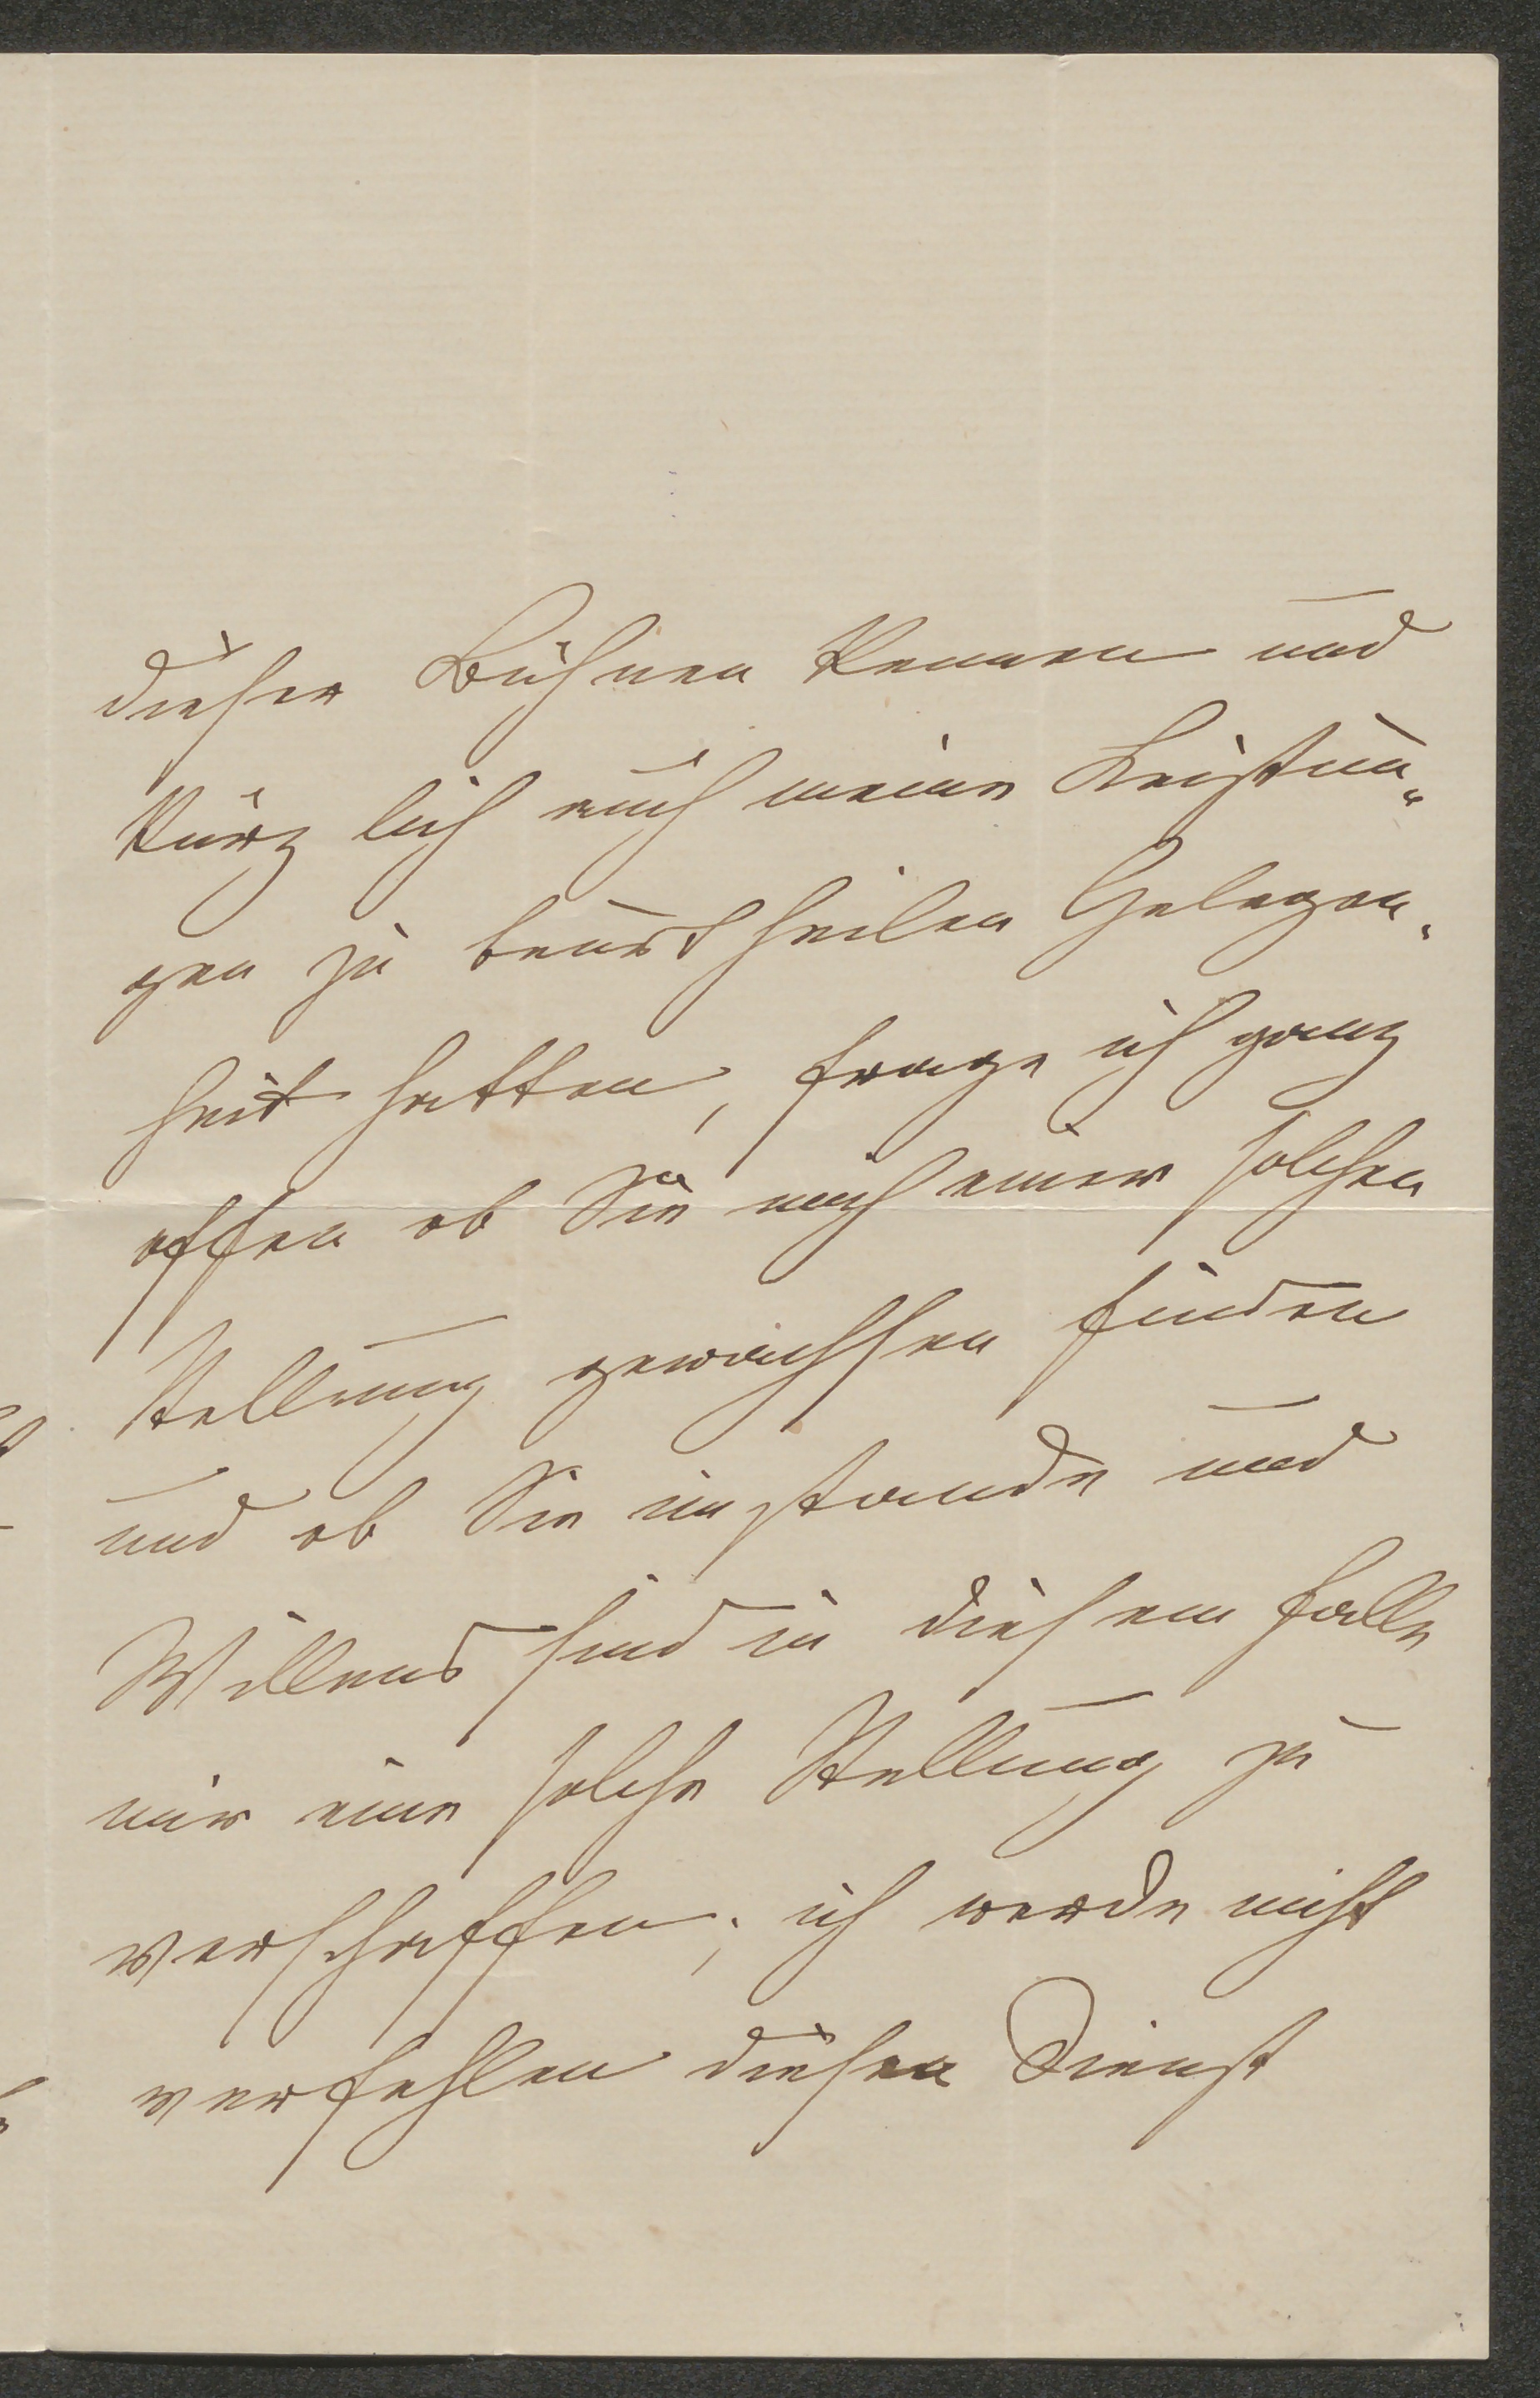 dieser Bühnen kennen und
kürzlich auch meine Leistun„
gen zu beurtheilen Gelegen„
heit hatten, frage ich ganz
offen ob Sie mich einer solchen
Stellung gewachsen finden
und ob Sie imstande und
Willens sind in diesem Falle
mir eine solche Stellung zu
verschaffen; ich werde nicht
verfehlen diesen Dienst